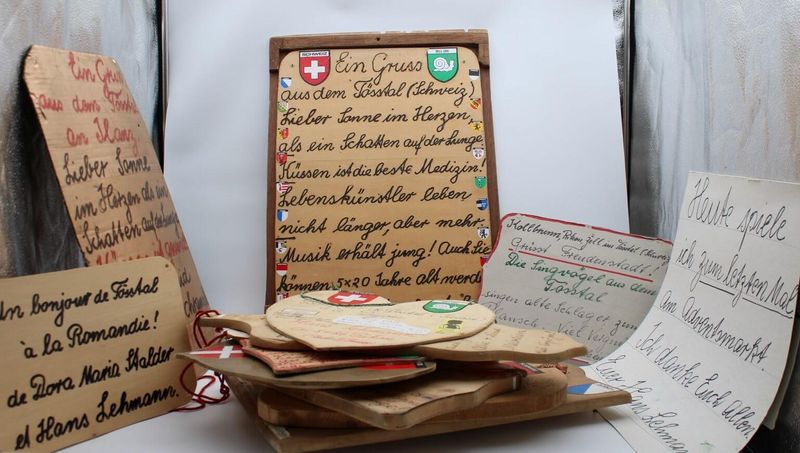 SCHWEIZ
Ein Gruss
aus dem Tösstal (Schweiz)
Lieber Sonne im Herzen,
als ein Schatten auf der Lunge
Küssen ist die beste Medizin!
Lebenskünstler leben
nicht länger, aber mehr.
Musik erhält jung! Auch Sie
können 5x20 Jahre alt werd
Ein Gruss
aus dem Tösstal
an
Lieber Sonne
im Herzen als ein
Schatten auf der Lunge
un bonjour de Tösstal
à la Romandie!
de Dora Maria Stalder
et Hans Lehmann.
Kollbrunn, Rikon, Zell im Tösstal
Grüsst Freudenstadt!
Die Singvögel aus dem
Tösstal
singen alte Schlager zum
Viel
Heute spiele
ich zum letzten Mal
am Adventsmarkt.
Ich danke Euch allen
Euer Hans Lehmann